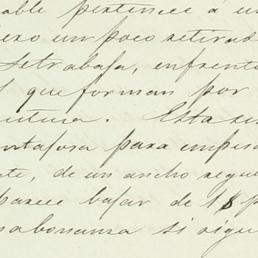 able pertenece á un
ero un poco retirad
se trabaja, enfrente
que forman por
utura. Esta se
entajosa para empes
te, de un ancho regu
parece bajar de 18 p
sabonanza si sigue